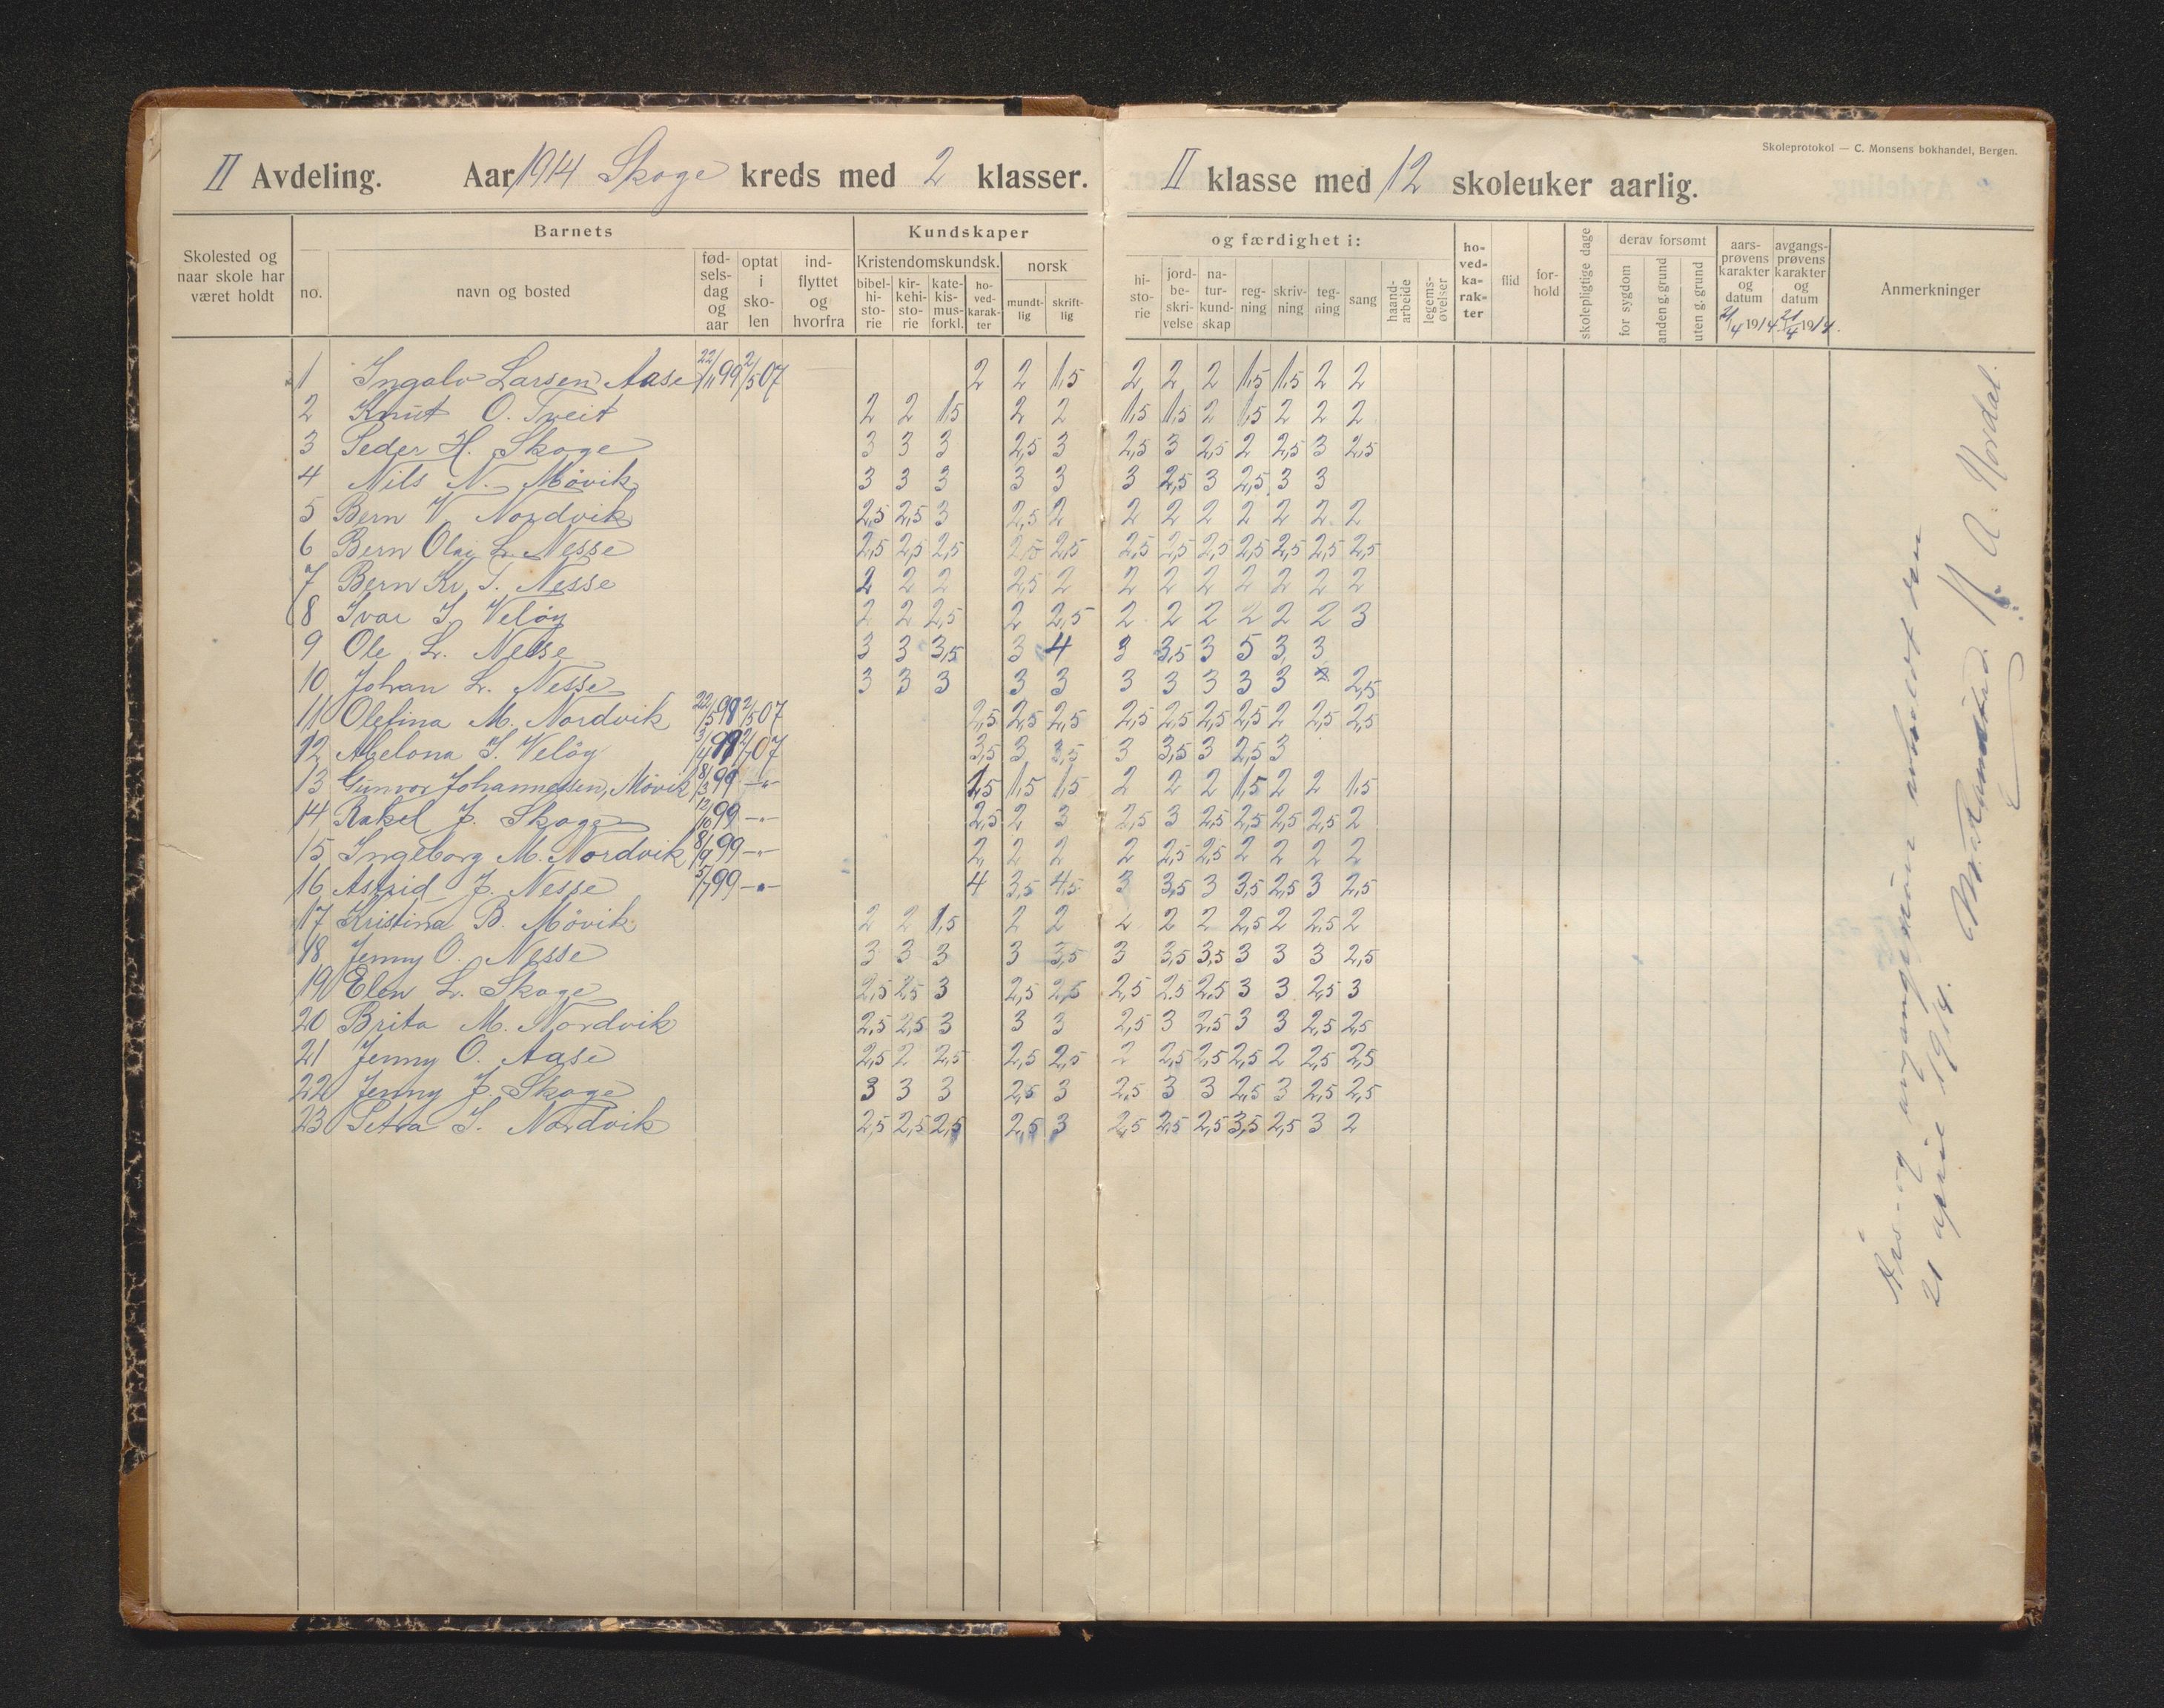 Skoleprotokol — C. Monsens bokhandel, Bergen.
II Avdeling. Aar 1914 Skoge kreds med 2 klasser. II klasse med 12 skoleuker aarlig.
Skolested og naar skole har været holdt
Barnets
no.
navn og bosted
fødselsdag og aar
optat i skolen
indflyttet og hvorfra
Kundskaper og færdighet i:
Kristendomskundsk.
bibelhistorie
kirkehistorie
katekismusforkl.
hovedkarakter
norsk
mundtlig
skriftlig
historie
jordbeskrivelse
naturkundskap
regning
skrivning
tegning
sang
haandarbeide
legemsøvelser
hovedkarakter
flid
forhold
skolepligtige dage
derav forsømt
for sygdom
anden g. grund
uten g. grund
aarsprøvens karakter og datum 21/4 1914.
avgangsprøvens karakter og datum 21/4 1914.
Anmerkninger
1 Ingolv Larsen Aase 22/11 99 2/5 07 2 2 1,5 2 2 2 1,5 1,5 2 2
2 Knut O. Tveit 2 2 1,5 2 2 1,5 1,5 2 1,5 2 2 2
3 Peder H. Skoge 3 3 3 2,5 3 2,5 3 2,5 2 2,5 3 2,5
4 Nils N. Mövik 3 3 3 3 3 3 2,5 3 2,5 3 3
5 Bern V. Nordvik 2,5 2,5 3 2,5 2 2 2 2 2 2 2 2
6 Bern Olai L. Nesse 2,5 2,5 2,5 2,5 2,5 2,5 2,5 2,5 2,5 2,5 2,5 2,5
7 Bern Kr. T. Nesse 2 2 2 2,5 2 2 2 2 2 2 2 2
8 Ivar I. Velöy 2 2 2,5 2 2,5 2 2 2 2 2 2 3
9 Ole L. Nesse 3 3 3,5 3 4 3 3,5 3 5 3 3
10 Johan L. Nesse 3 3 3 3 3 3 3 3 3 3 2,5
11 Olefina M. Nordvik 22/5 98 2/5 07 2,5 2,5 2,5 2,5 2,5 2,5 2,5 2 2,5 2,5
12 Abelona I. Velöy 3/4 99 07 3,5 3 3,5 3 3,5 3 2,5 3
13 Gunvor Johannessen, Mövik 8/3 99 —"— 1,5 1,5 1,5 2 2 2 1,5 2 2 1,5
14 Rakel J. Skoge 12/10 99 —"— 2,5 2 3 2,5 3 2,5 2,5 2,5 2,5 2
15 Ingeborg M. Nordvik 8/9 99 —"— 2 2 2 2 2,5 2,5 2 2 2 2
16 Astrid J. Nesse 5/7 99 —"— 4 3,5 4,5 3 3,5 3 3,5 2,5 3 2,5
17 Kristina B. Mövik 2 2 1,5 2 2 2 2 2 2,5 2 2,5 2
18 Jenny O. Nesse 3 3 3 3 3,5 3 3,5 3,5 3 3 3 2,5
19 Elen L. Skoge 2,5 2,5 3 2,5 2,5 2,5 2,5 2,5 3 3 2,5 3
20 Brita M. Nordvik 2,5 2,5 3 3 3 2,5 3 2,5 3 3 2,5 2,5
21 Jenny O. Aase 2,5 2 2,5 2,5 2,5 2 2,5 2,5 2,5 2 2,5 2,5
22 Jenny J. Skoge 3 3 3 2,5 3 2,5 3 3 2,5 3 2,5 2,5
23 Petra I. Nordvik 2,5 2,5 2,5 2,5 3 2,5 2,5 2,5 3,5 2,5 3 2
Års- og avgangspröve avholdt den
21 april 1914.
N. A. Nordal.